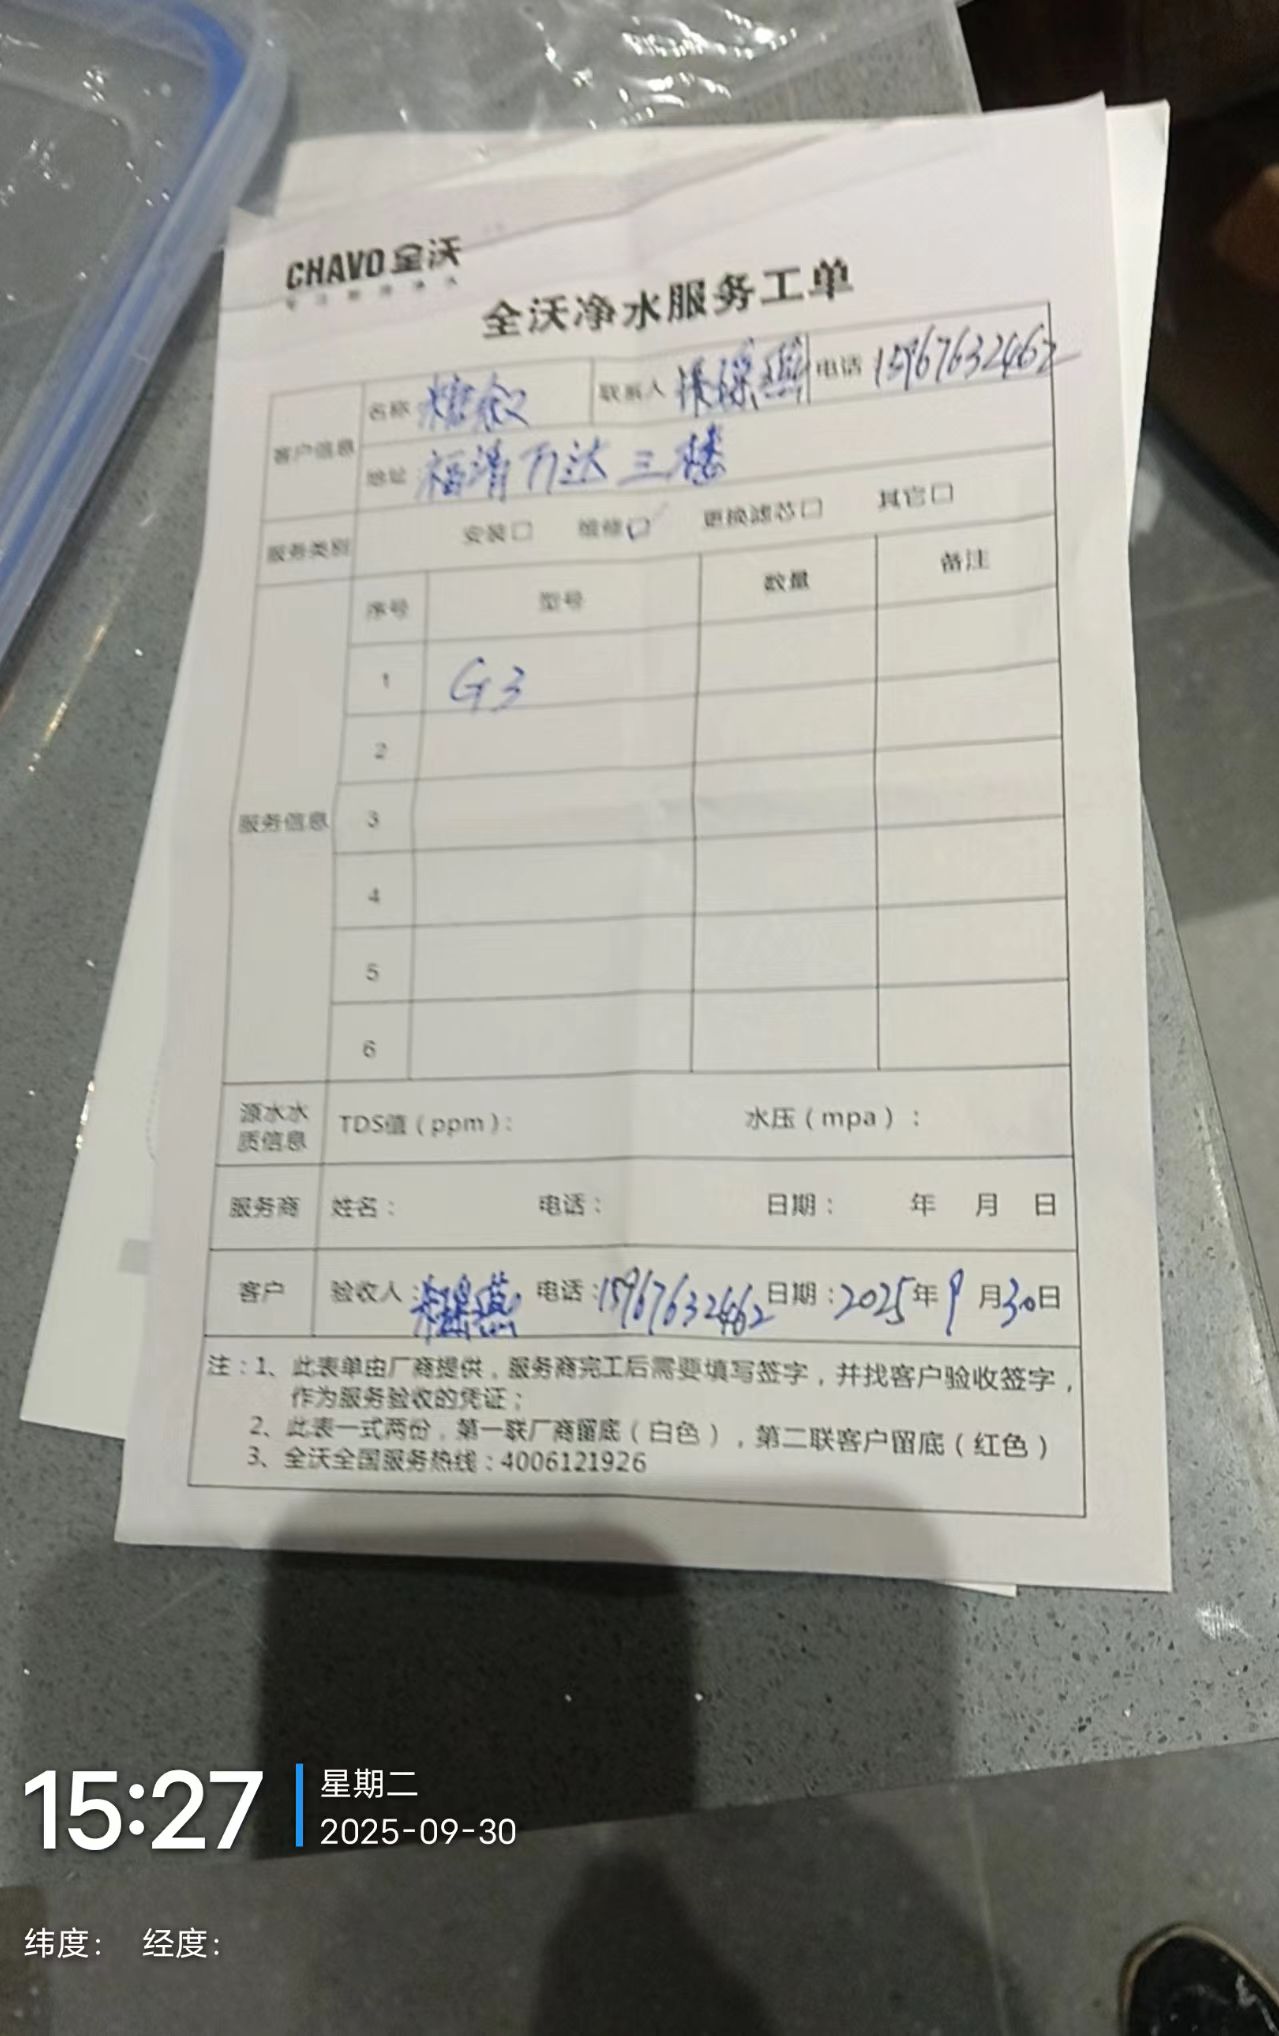 CHAVO 全沃
全沃净水服务工单
客户信息 名称 联系人 电话 15967632462
地址 福清万达三楼
服务类别 安装□ 维修□ 更换滤芯□ 其它□
服务信息 序号 型号 数量 备注
1 G3
2
3
4
5
6
源水水质信息 TDS值(ppm): 水压(mpa):
服务商 姓名: 电话: 日期: 年 月 日
客户 验收人: 电话:15967632462 日期:2025年9月30日
注:1、此表单由厂商提供,服务商完工后需要填写签字,并找客户验收签字,
作为服务验收的凭证;
2、此表一式两份,第一联厂商留底(白色),第二联客户留底(红色)
3、全沃全国服务热线:4006121926
15:27
星期二
2025-09-30
纬度: 经度: